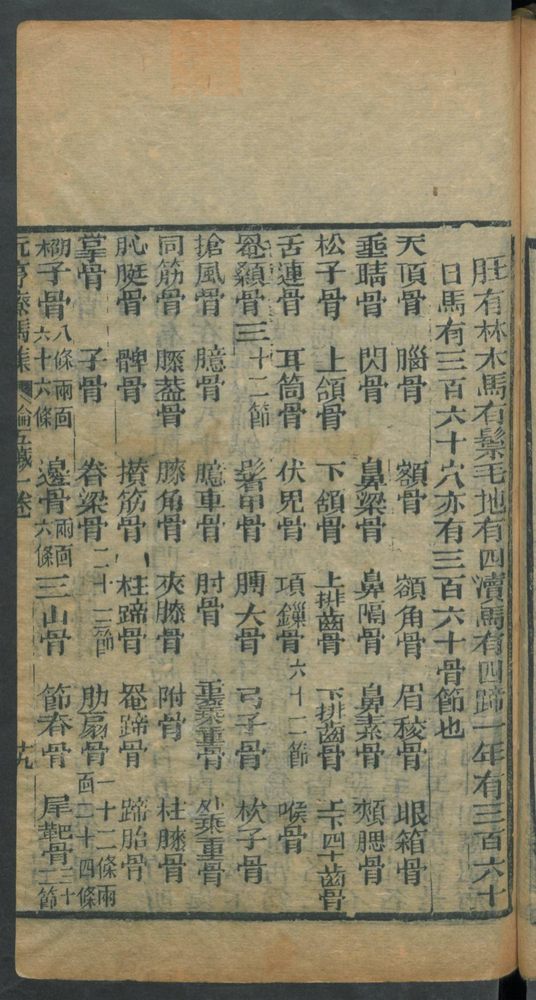 旺有林木馬有鬃毛地有四瀆馬有四蹄一年有三百六十
日馬有三百六十穴亦有三百六十骨節也
天頂骨 腦骨 額骨 額角骨 眉稜骨 眼箱骨
垂睛骨 閃骨 鼻梁骨 鼻隔骨 鼻素骨 頰腮骨
松子骨 上頷骨 下頷骨 上排齒骨 下排齒骨 上下四十齒骨
舌連骨 耳筒骨 伏兕骨 項鏁骨六十二節 喉骨
罨顙骨三十二節 髻甲骨 膊大骨 弓子骨 枕子骨
搶風骨 臆骨 臆車骨 肘骨 乘重骨 外乘重骨
同筋骨 膝蓋骨 膝角骨 夾膝骨 附骨 柱膝骨
骭骨 髀骨 攅筋骨 柱蹄骨 罨蹄骨 蹄胎骨
掌骨 子骨 脊梁骨二十二節 肋扇骨一十二條兩面二十四條
子骨八條兩面六十六條 邊骨兩面六條 三山骨 節春骨 尾靶骨三十二節
元亨療馬集 論五臟一卷 十九